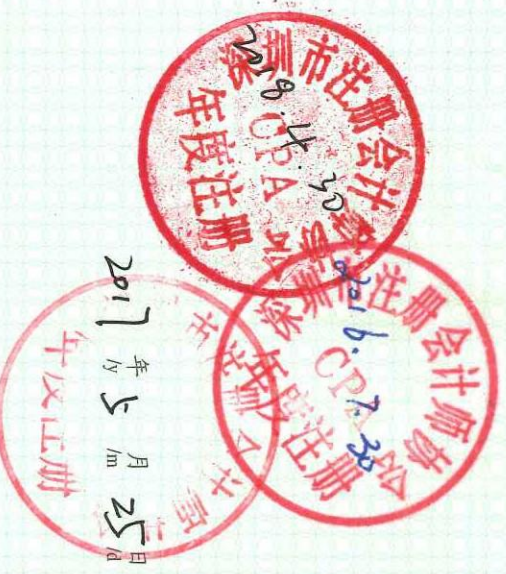 深圳市注册会计师协会
CPA
年度注册
2018.4.30
深圳市注册会计师协会
CPA
年度注册
2016.7.30
2017年5月25日
/y /m /d